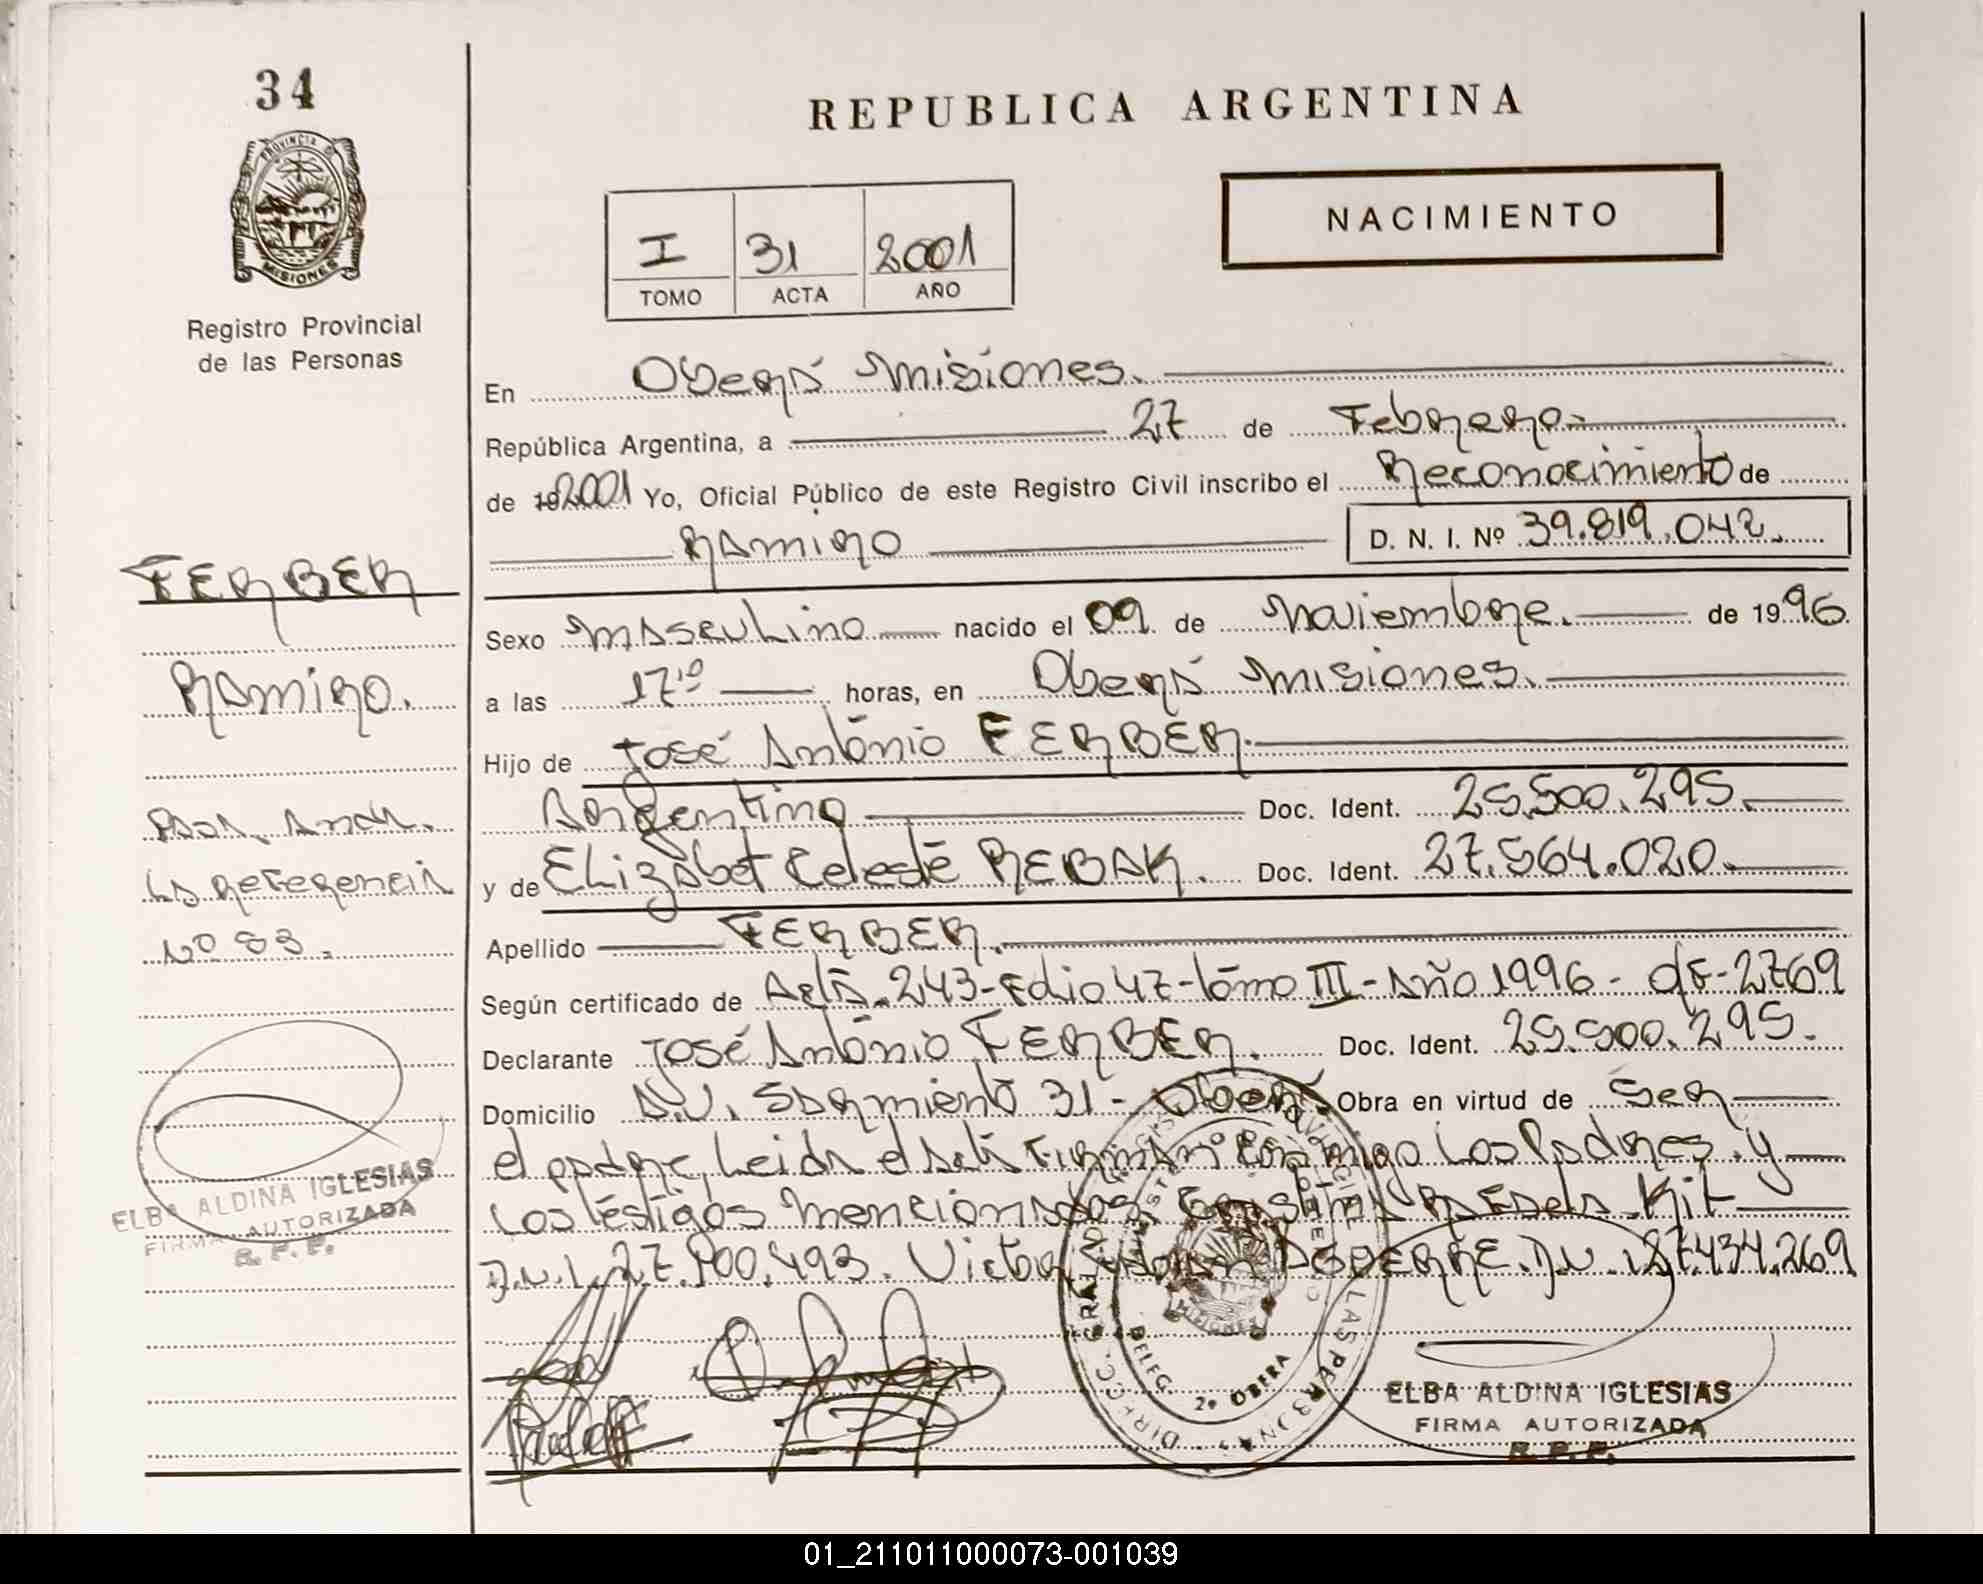 34
PROVINCIA DE
MISIONES
Registro Provincial
de las Personas
FERBER
Ramiro.
Para Anar.
La referencia
Nº 83.
ELBA ALDINA IGLESIAS
FIRMA AUTORIZADA
R. P. P.
REPUBLICA ARGENTINA
NACIMIENTO
I 31 2001
TOMO ACTA AÑO
En Oberá Misiones.
República Argentina, a 27 de Febrero.
de 192001 Yo, Oficial Público de este Registro Civil inscribo el Reconocimiento de
Ramiro D. N. I. Nº 39.819.042.
Sexo Masculino nacido el 09 de Noviembre. de 1996
a las 17¹⁰ horas, en Oberá Misiones.
Hijo de José António FERBER.
Argentino Doc. Ident. 25.500.295.
y de Elizabet Celeste REBAK. Doc. Ident. 27.564.020.
Apellido FERBER.
Según certificado de Acta. 243-Folio 47-tomo III-Año 1996- df-2769
Declarante José António FERBER. Doc. Ident. 25.500.295.
Domicilio A.V. Sarmiento 31- Oberá Obra en virtud de Ser
el padre, Leida el Acta Firman Conmigo Los Padres. y
Los testigos mencionados, Kit
D.N.I. 27.900.493. Victor DN.I 27.434.269
DIRECC. GRAL DE LAS PERSONAS
DELEG. 2º OBERA
MISIONES
ELBA ALDINA IGLESIAS
FIRMA AUTORIZADA
R. P. P.
01_211011000073-001039